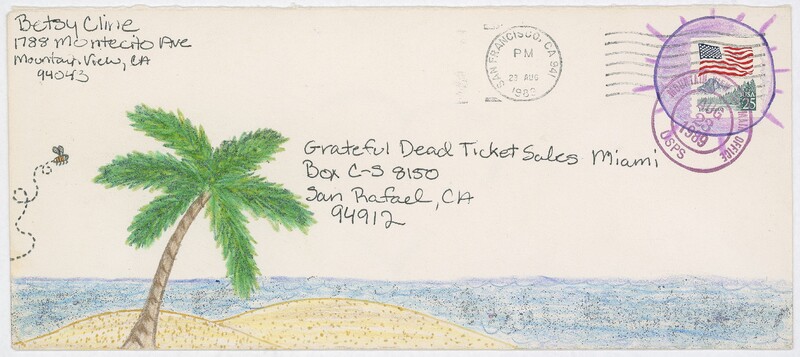 Betsy Cline
1788 Montecito Ave
Mountain View, CA
94043
SAN FRANCISCO, CA 941
PM
23 AUG
1989
USA
25
MOUNTAIN VIEW
MAIN OFFICE
AUG
23
1989
USPS
Grateful Dead Ticket Sales Miami
Box C-S 8150
San Rafael, CA
94912